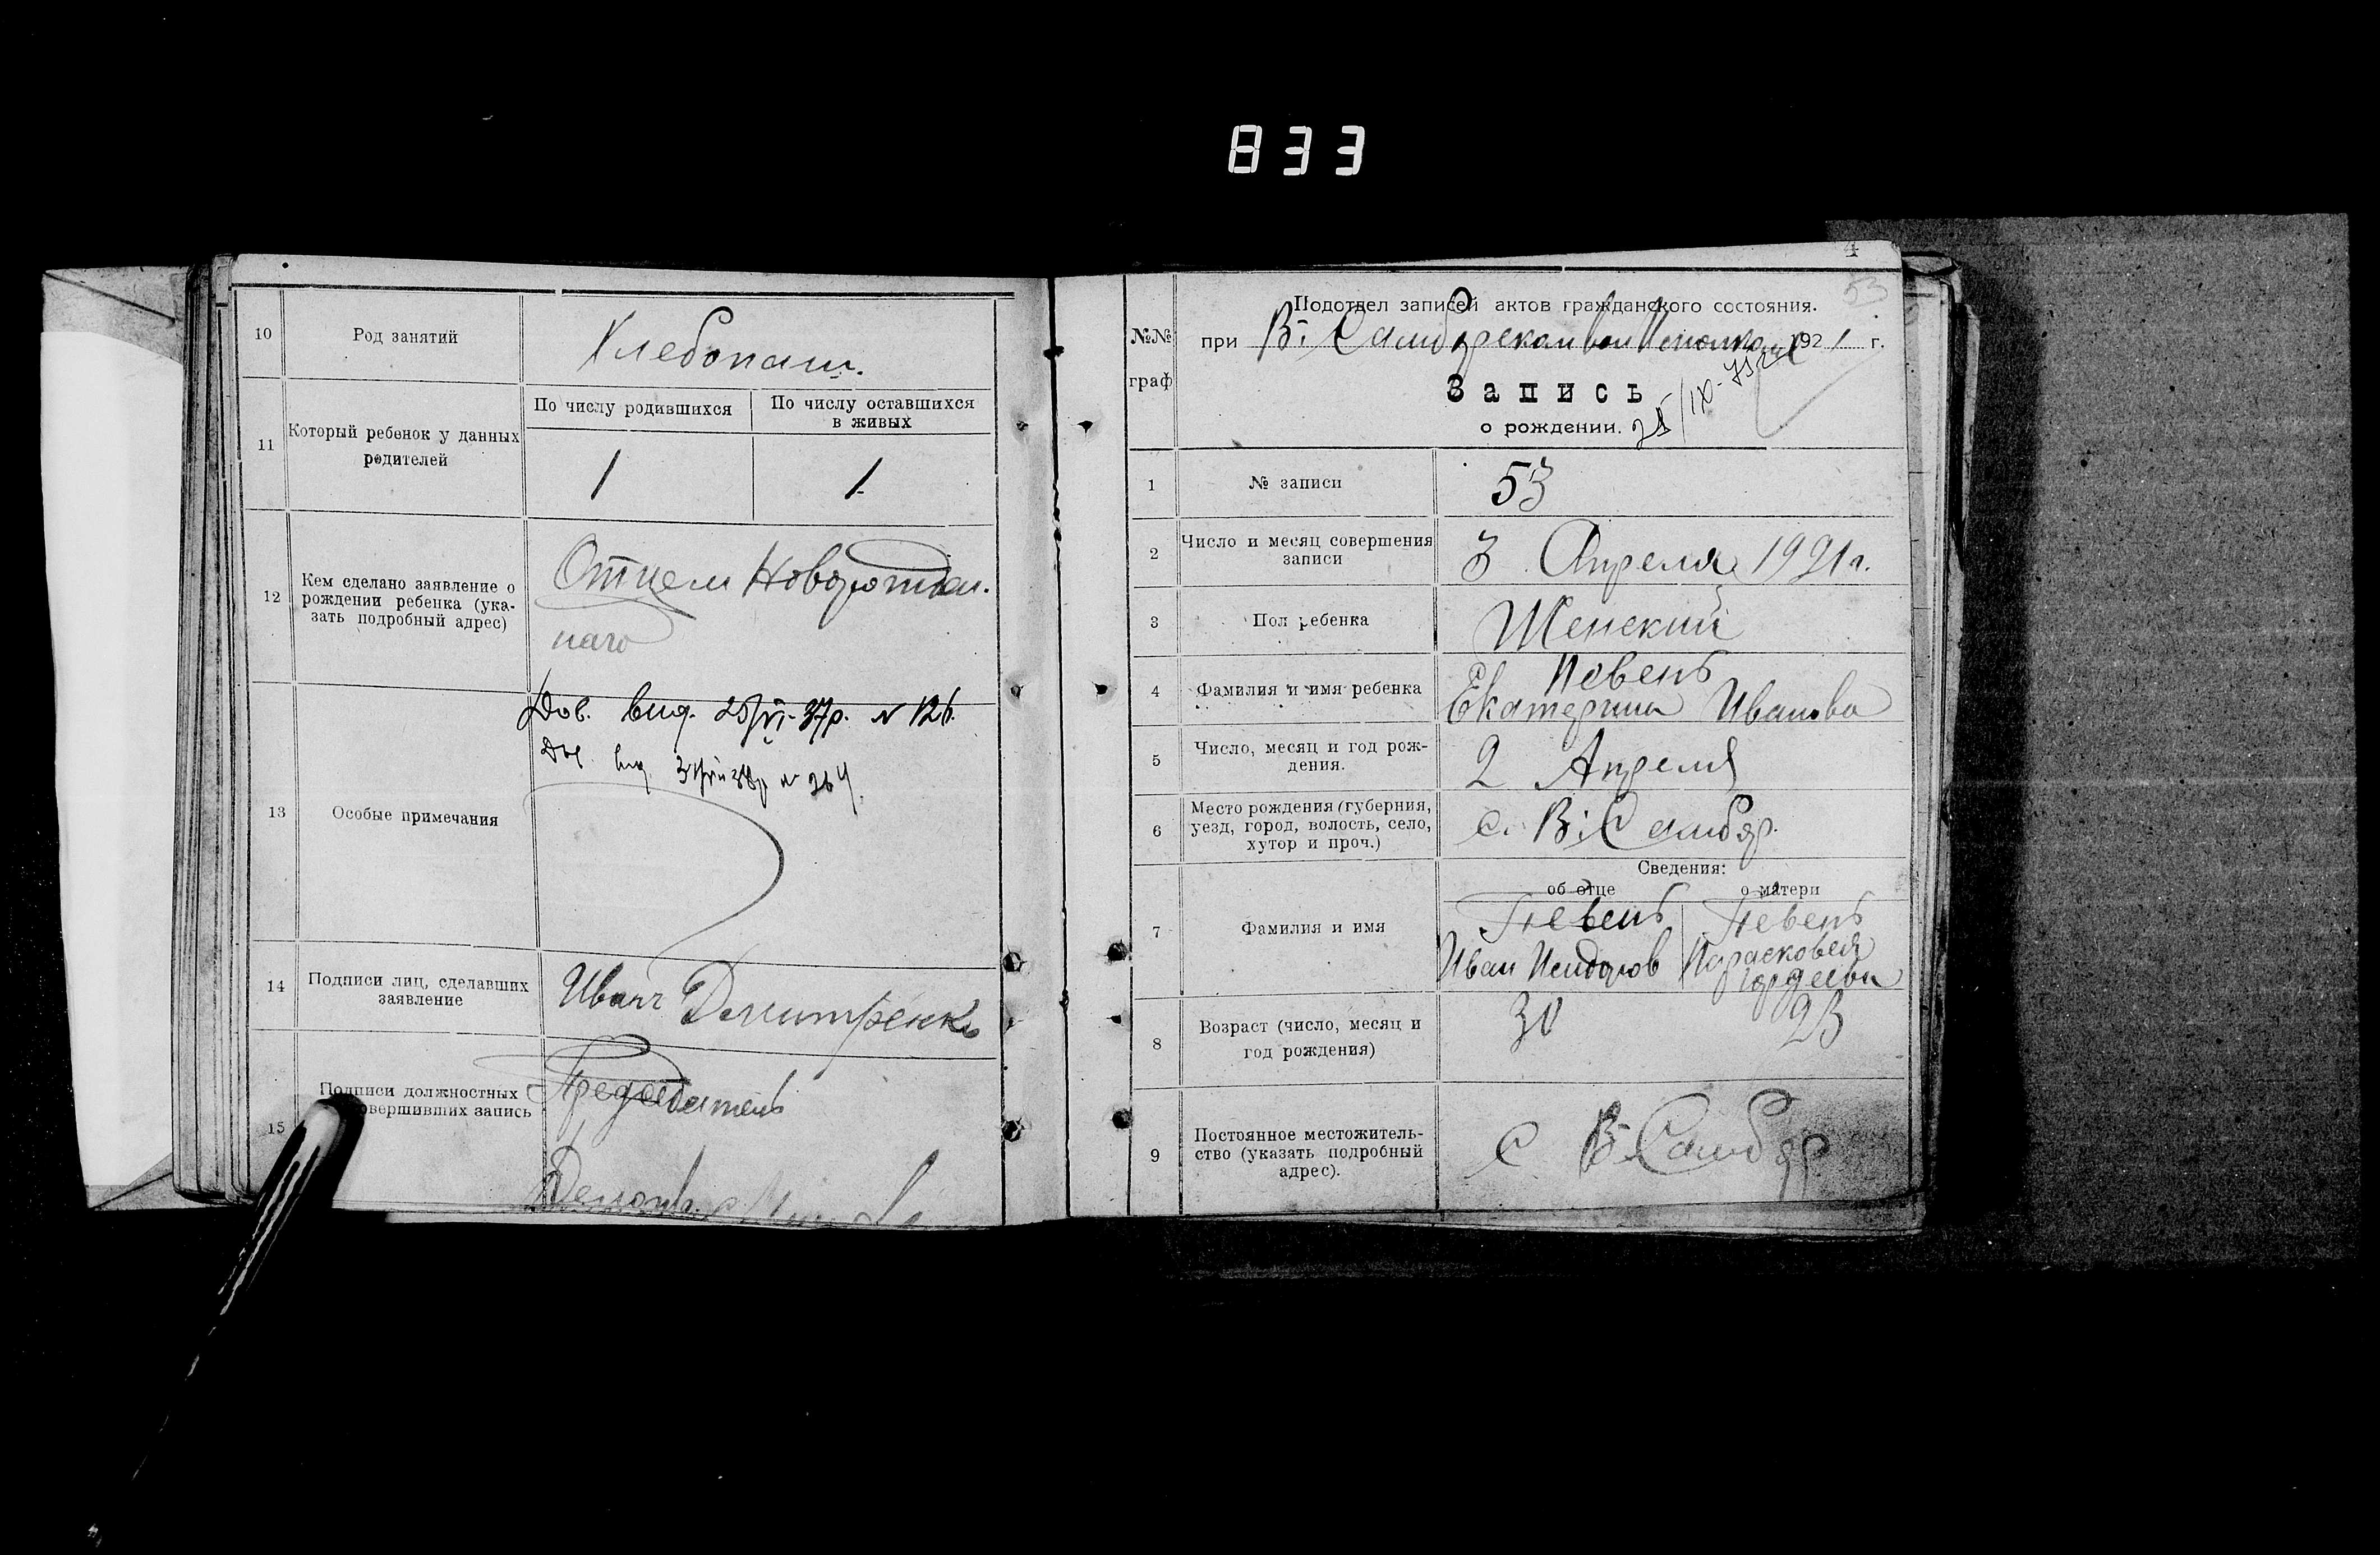 833
10
Род занятий
Хлебопаш.
11
Который ребенок у данных
родителей
По числу родившихся
По числу оставшихся
в живых
1
1
12
Кем сделано заявление о
рождении ребенка (ука-
зать подробный адрес)
Отцем Новорожден.
наго
13
Особые примечания
Дов. вид. 25/VI-37р. N 126.
14
Подписи лиц, сделавших
заявление
Иван Демитренко
15
Подписи должностных
овершивших запись
Председатель
4
53
№№
граф
Подотдел записей актов гражданского состояния.
при В: Самборском Вол 1921 г.
Запись
о рождении.
1
№ записи
53
2
Число и месяц совершения
записи
3 Апреля 1921 г.
3
Пол ребенка
Женский
4
Фамилия и имя ребенка
Певень
Екатерина Иванова
5
Число, месяц и год рож-
дения.
2 Апреля
6
Место рождения (губерния,
уезд, город, волость, село,
хутор и проч.)
с. В: Самбор.
Сведения:
об отце
о матери
7
Фамилия и имя
Певень
Иван Исидоров
Певень
Парасковея
Гордеева
8
Возраст (число, месяц и
год рождения)
30
23
9
Постоянное местожитель-
ство (указать подробный
адрес).
с В-Самбор